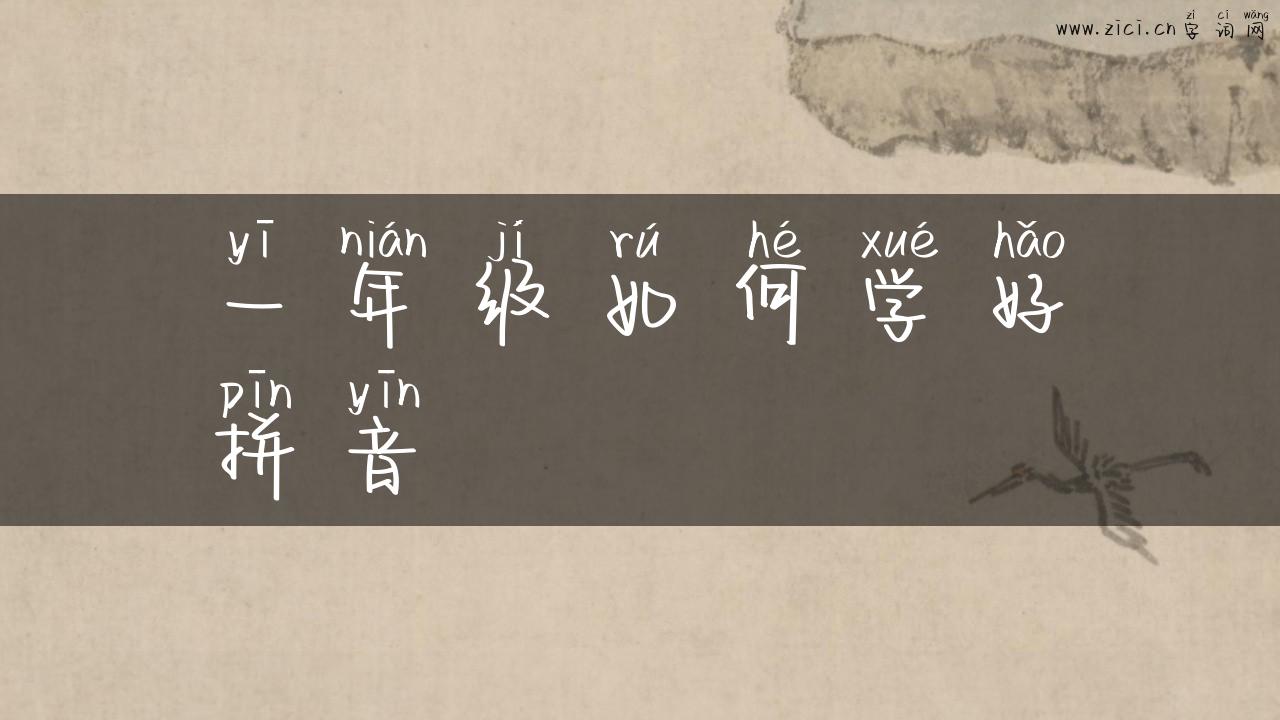 zì cí wǎng
www.zici.cn 字词网
yī nián jí rú hé xué hǎo
一年级如何学好
pīn yīn
拼音